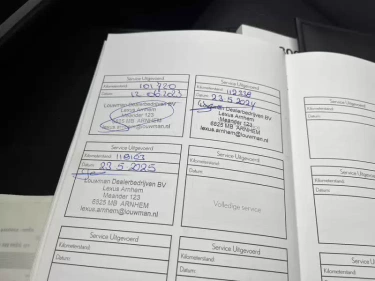 Service Uitgevoerd
Kilometerstand 101.720
Datum 12.06.2023
Louwman Dealerbedrijven BV
Lexus Arnhem
Meander 123
6825 MB ARNHEM
lexus.arnhem@louwman.nl
Service Uitgevoerd
Kilometerstand 112338
Datum 23.5.2024
Dealerbedrijven BV
Lexus Arnhem
Meander 123
6825 MB ARNHEM
lexus.arnhem@louwman.nl
Service Uitgevoerd
Kilometerstand
Datum 23.5.2025
Louwman Dealerbedrijven BV
Lexus Arnhem
Meander 123
6825 MB ARNHEM
lexus.arnhem@louwman.nl
Service Uitgevoerd
Kilometerstand
Datum
Volledige service
Service Uitgevoerd
Kilometerstand
Datum
Service Uitgevoerd
Kilometerstand
Datum
Kilometerstand
Datum
Kilometerstand
Datum
Kilometerstand
Datum